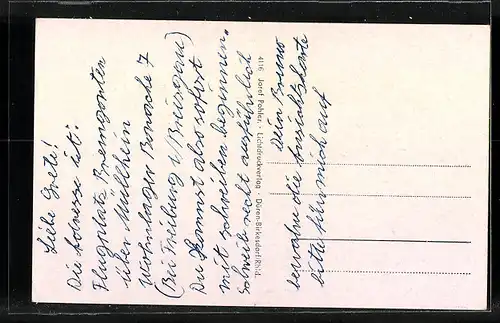 Liebe Grete!
Die Adresse ist:
Flugplatz Bremgarten
über Müllheim
Wohnlager Baracke 7
(Bei Freiburg i/Breisgau)
Du kannst also sofort
mit schreiben beginnen.
Schreib recht ausführlich
4116 Josef Pohler, · Lichtdruckverlag · Düren-Birkesdorf-Rhld.
Dein Bruno
bewahre die Ansichtskarte
bitte für mich auf